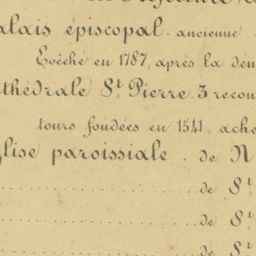 alais épiscopal ancienne
Evêché en 1787, après la dém
thédrale St. Pierre 3 recon
tours fondées en 1541, ache
glise paroissiale . de N
de St.
de St.
de St.